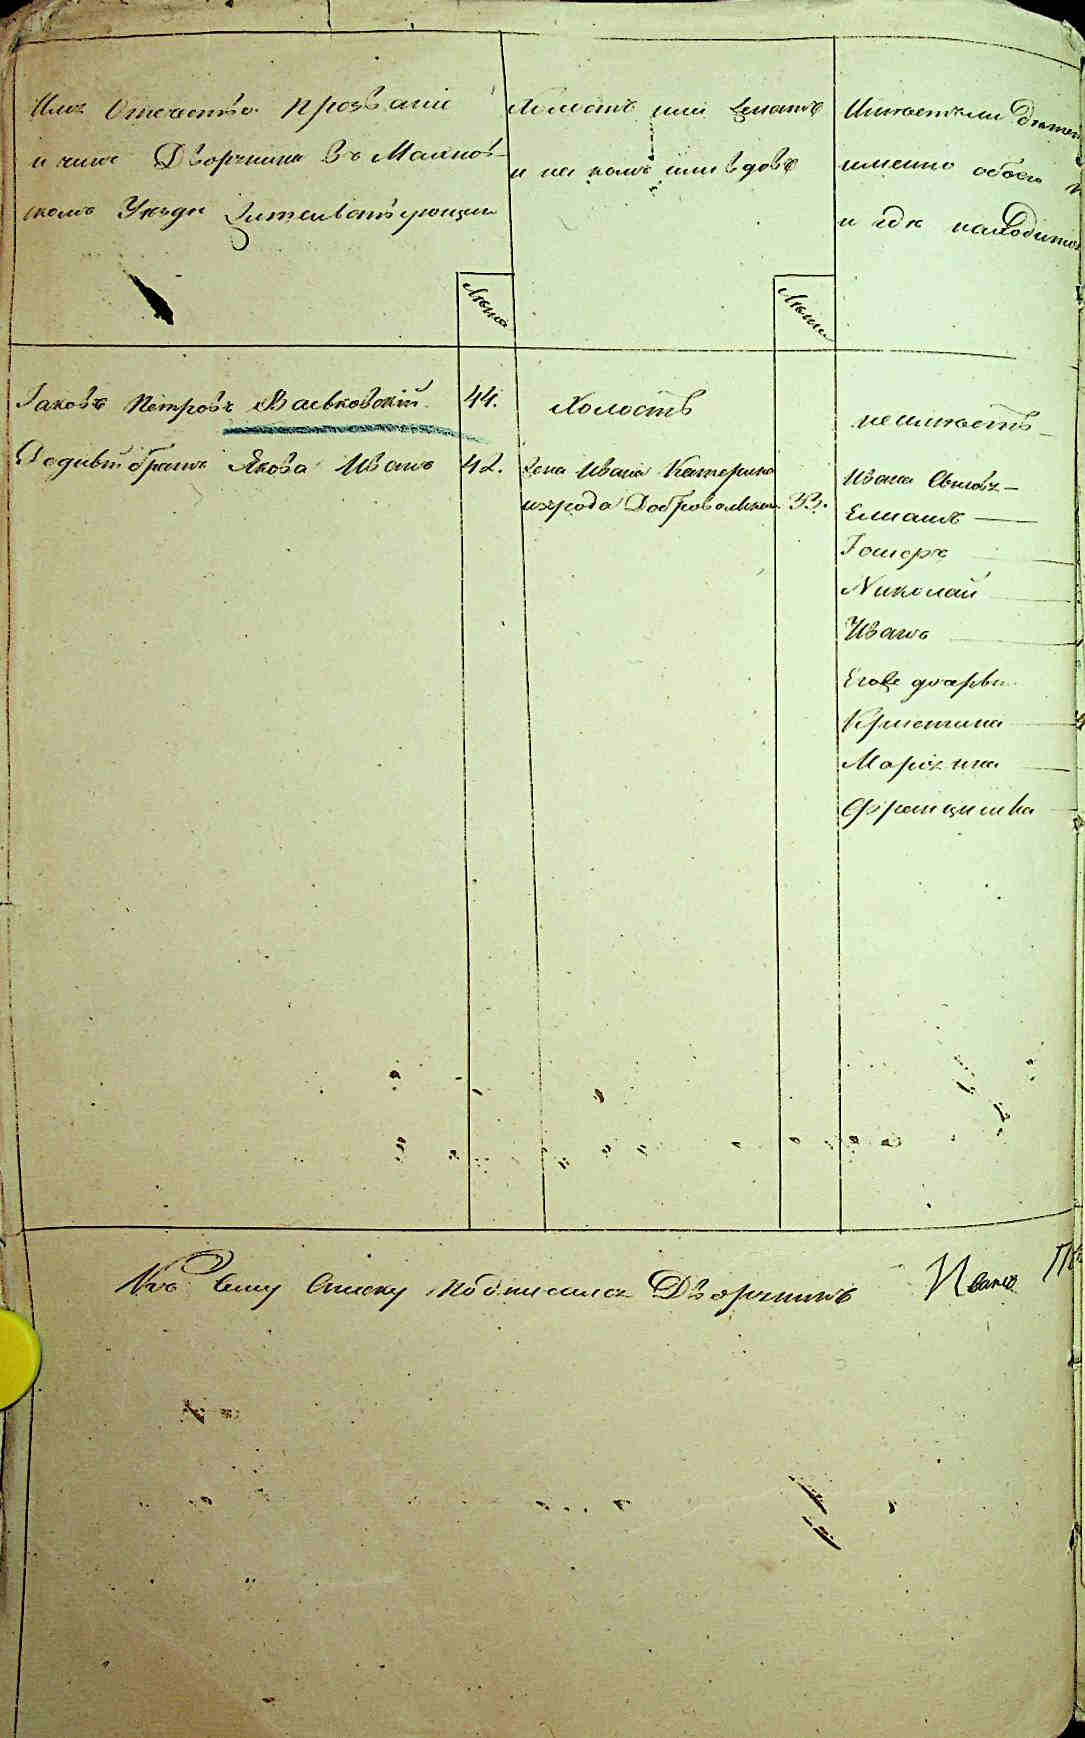 Имя Отечество Прозваніе
и чинъ Дворянина въ Махнов-
скомъ Уездѣ Жительствующаго
Лѣта
Холостъ или женатъ
и на комъ или вдовъ
Лѣта
Имѣетъ ли Дѣтей
именно обоего
и гдѣ находится
Іаковъ Петровъ Васьковскій
44.
Холостъ
неимѣетъ
Родный братъ Якова Иванъ
42.
Жена Ивана Катерина
изрода Добровольска
33.
Ивана Сыновъ
Елиашъ
Гомеръ
Николай
Иванъ
Его же дочеры
Кристина
Маріянна
Францишка
Къ Сему Списку подписался Дворянинъ Иванъ